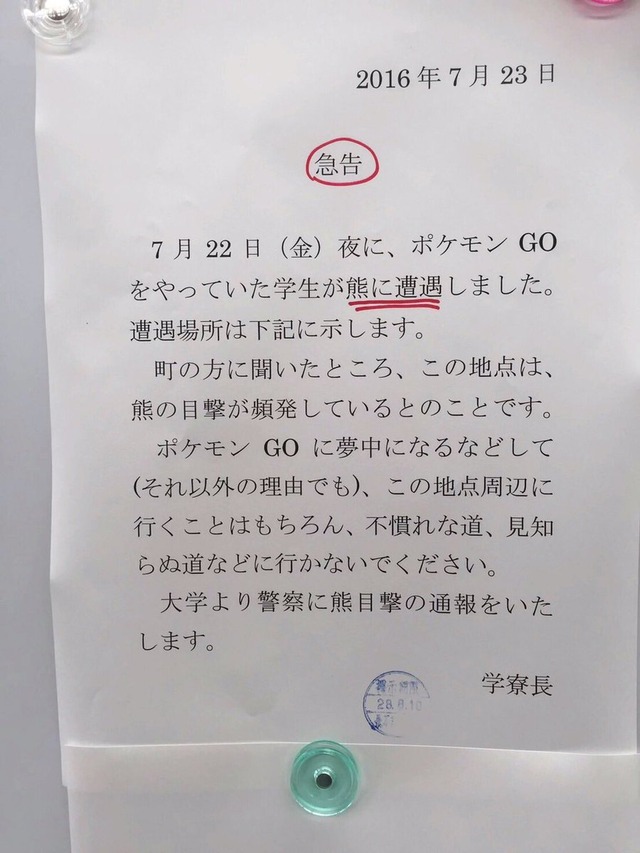 2016年7月23日
急告
7月22日（金）夜に、ポケモンGO
をやっていた学生が熊に遭遇しました。
遭遇場所は下記に示します。
町の方に聞いたところ、この地点は、
熊の目撃が頻発しているとのことです。
ポケモン GO に夢中になるなどして
(それ以外の理由でも)、この地点周辺に
行くことはもちろん、不慣れな道、見知
らぬ道などに行かないでください。
大学より警察に熊目撃の通報をいた
します。
学寮長
28.8.10